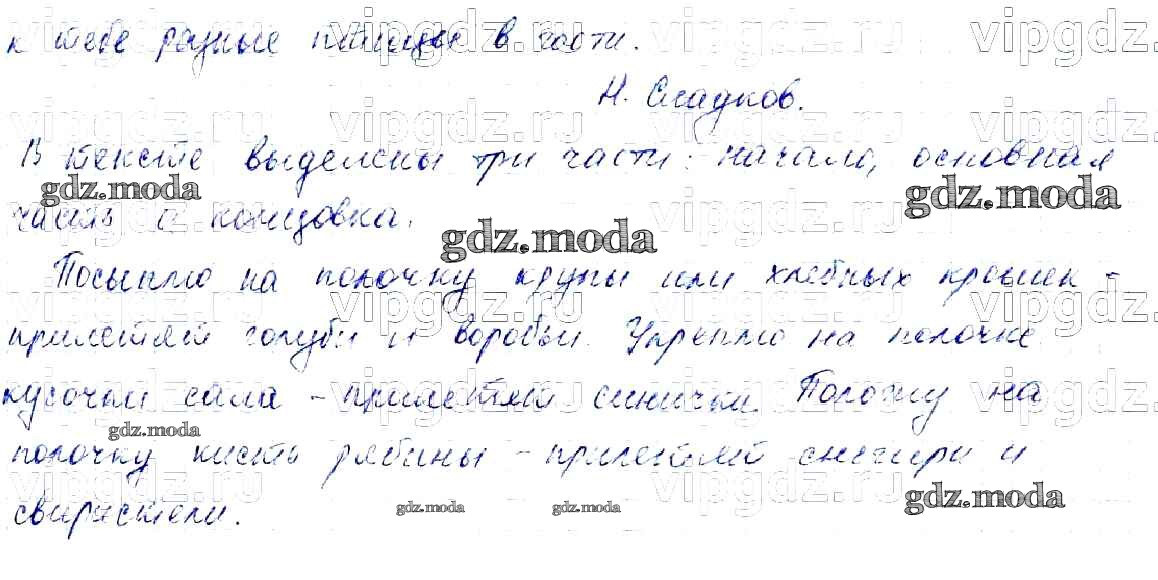 к тебе разные птицы в гости.
Н. Сладков.
В тексте выделены три части: начало, основная
часть и концовка.
Посыплю на полочку крупы или хлебных крошек -
прилетят голуби и воробьи. Укреплю на полочке
кусочки сала - прилетят синички. Положу на
полочку кисть рябины - прилетят снегири и
свиристели.
vipgdz.ru
gdz.moda